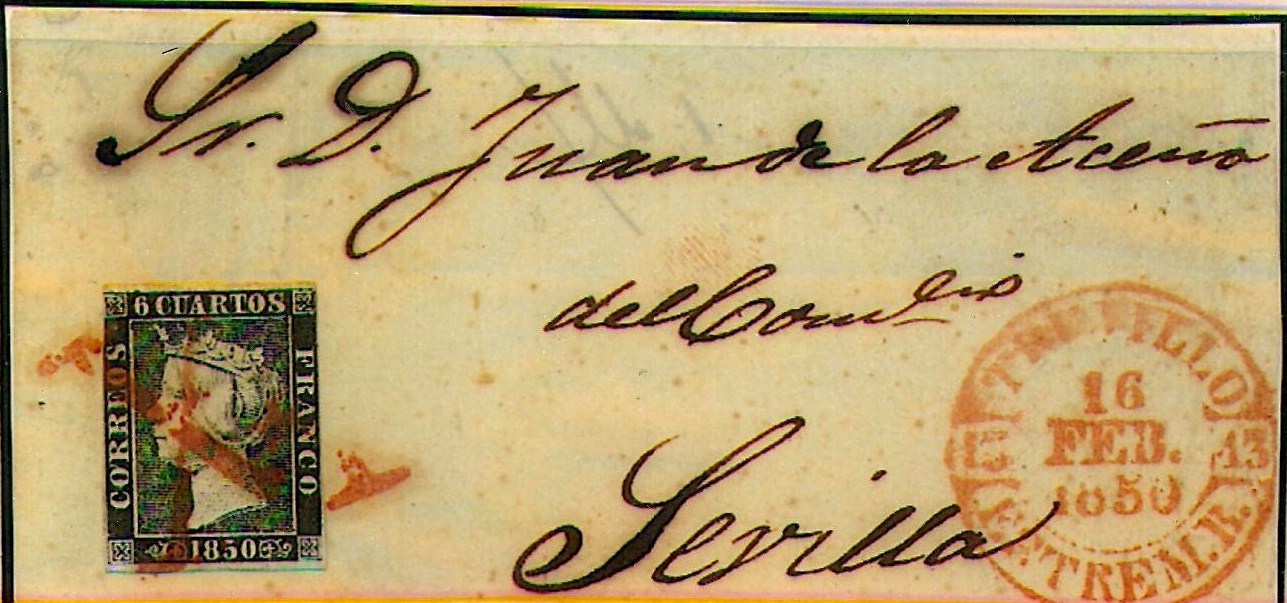 Sr. D. Juan de la Aceña
del Comcio
Sevilla
6 CUARTOS
CORREOS
FRANCO
1850
TRUJILLO
16
FEB.
1850
13 13
E.TREM.B.